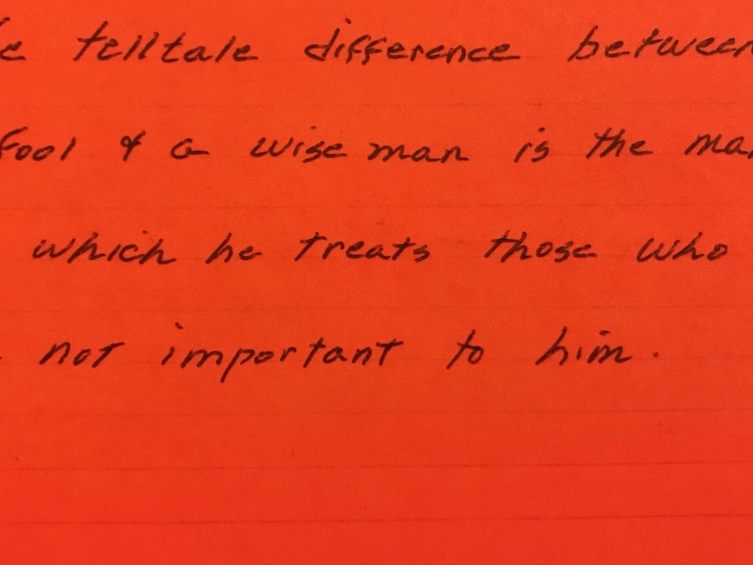 telltale difference between
fool & a wise man is the
which he treats those who
not important to him.